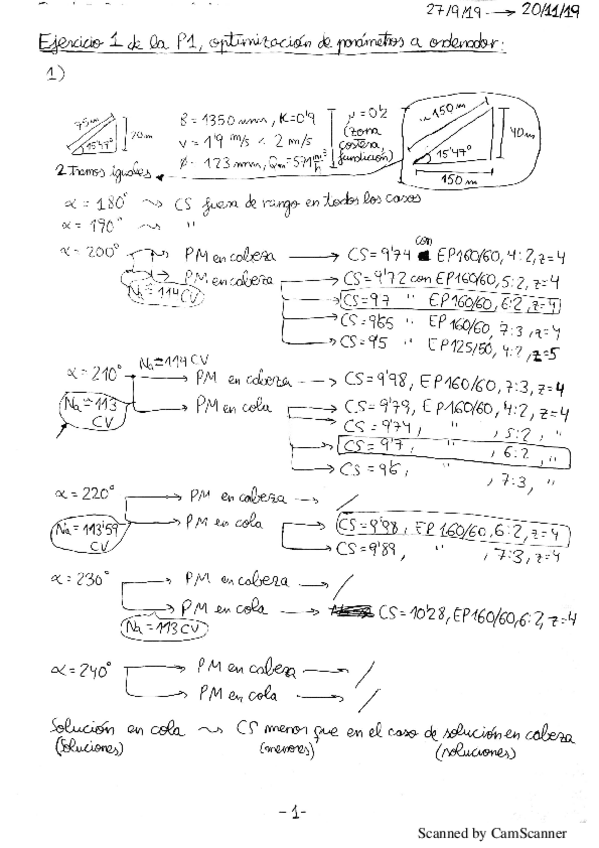 27/9/19 → 20/11/19
Ejercicio 1 de la P1, optimización de parámetros a ordenador:
1)
75m 20m 15'47°
B=1350 mm, K=0'9
V=1'9 m/s < 2 m/s
Ø=123mm, Qm=571 m³/h
μ=0'2
(zona
costera,
fundición)
~150m 40m 15'47°
150m
2 Tramos iguales
α=180° ~> CS fuera de rango en todos los casos
α=190° ~> "
α=200° → PM en cabeza → CS=9'74 con EP160/60, 4:2, z=4
→ PM en cabeza → CS=9'72 con EP160/60, 5:2, z=4
Na=114CV
→ CS=9'7 " EP160/60, 6:2, z=4
→ CS=9'65 " EP160/60, 7:3, z=4
→ CS=9'5 " EP125/50, 4:2, z=5
Na=114CV
α=210° → PM en cabeza --→ CS=9'98, EP160/60, 7:3, z=4
Na=113 CV
→ PM en cola → CS=9'79, EP160/60, 4:2, z=4
→ CS=9'74, " , 5:2, "
→ CS=9'7, " , 6:2, "
→ CS=9'6, " , 7:3, "
α=220° → PM en cabeza --> /
Na=113'59 CV
→ PM en cola → CS=9'98, EP160/60, 6:2, z=4
→ CS=9'89, " , 7:3, z=4
α=230° → PM en cabeza → /
→ PM en cola --→ CS=10'28, EP160/60, 6:2, z=4
Na=113CV
α=240° → PM en cabeza → /
→ PM en cola → /
Solución en cola ~> CS menor que en el caso de solución en cabeza
(Soluciones) (menores) (soluciones)
-1-
Scanned by CamScanner